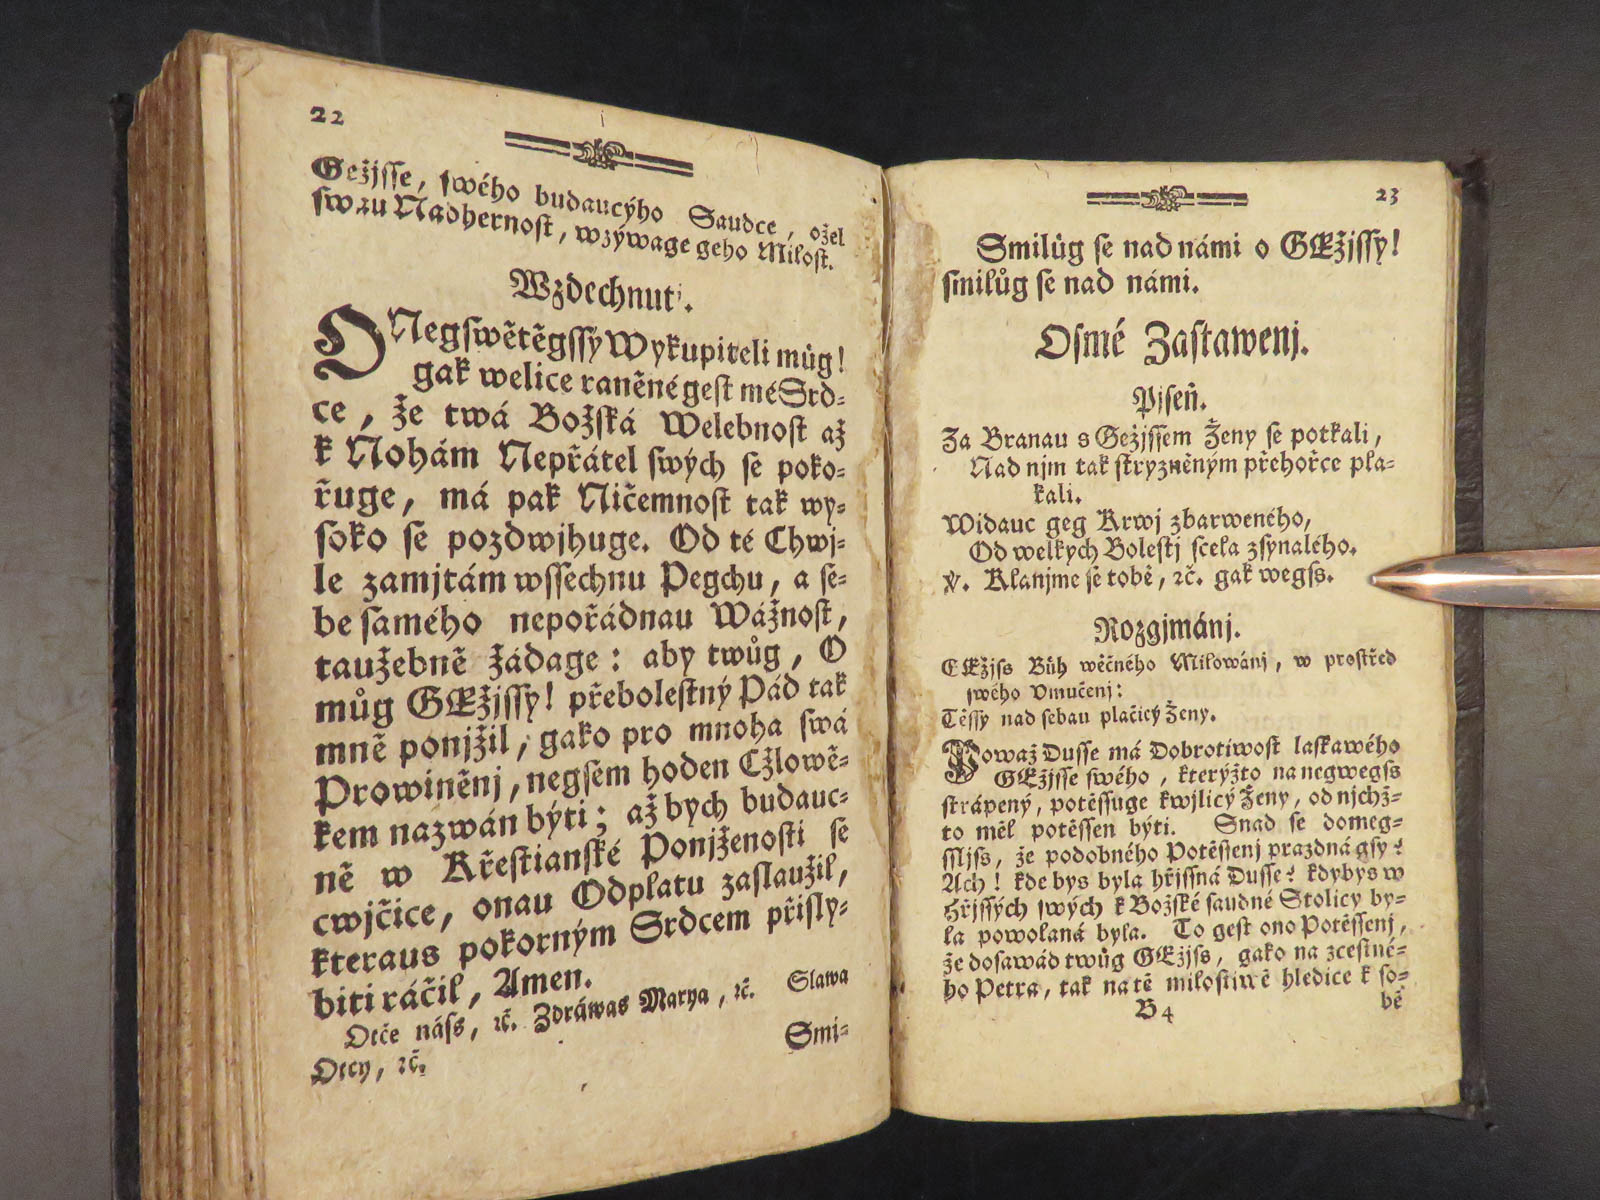 22
Gežjſſe, ſwého budaucýho Saudce, ožel
ſwau Nádhernoſt, wzýwage geho Miloſt.
Wzdechnutj.
O Negſwětěgſſý Wykupiteli můg!
gak welice raněné geſt mé Srd-
ce, že twá Božſká Welebnoſt až
k Nohám Nepřátel ſwých ſe poko-
řuge, má pak Ničemnoſt tak wy-
ſoko ſe pozdwjhuge. Od té Chwj-
le zamjtám wſſechnu Pegchu, a ſe-
be ſamého nepořádnau Wážnoſt,
taužebně žádage: aby twůg, O
můg GEžjſſy! přeboleſtný Pád tak
mně ponjžil, gako pro mnoha ſwá
Prowiněnj, negſem hoden Cžlowě-
kem nazwán býti; až bych budauc-
ně w Křeſtianſké Ponjženoſti ſe
cwjčice, onau Odplatu zaſlaužil,
kteraus pokorným Srdcem přiſly-
biti ráčil, Amen.
Otče náſs, ꝛč. Zdráwas Marya, ꝛč. Slawa
Otcy, ꝛč.
Smi-
23
Smilůg ſe nad námi o GEžjſſy!
ſmilůg ſe nad námi.
Oſmé Zaſtawenj.
Pjſeň.
Za Branau s Gežjſſem Ženy ſe potkali,
Nad njm tak ſtryzněným přehořce pla-
kali.
Widauc geg Krwj zbarweného,
Od welkych Boleſtj ſcela zſynalého.
℣. Klanjme ſe tobě, ꝛč. gak wegſs.
Rozgjmánj.
GEžjſs Bůh wěčného Milowánj, w proſtřed
ſwého Umučenj:
Těſſy nad ſebau plačicý Ženy.
Powaž Duſſe má Dobrotiwoſt laſkawého
GEžjſſe ſwého, kterýžto na negwegſs
ſtrápený, potěſſuge kwjlicý Ženy, od njchž-
to měl potěſſen býti. Snad ſe domeg-
ſſljſs, že podobného Potěſſenj prázdná gſy?
Ach! kde bys byla hřjſſná Duſſe? kdybys w
Hřjſſých ſwých k Božſké ſaudné Stolicy by-
la powolaná byla. To geſt ono Potěſſenj,
že doſawád twůg GEžjſs, gako na zceſtné-
ho Petra, tak na tě miloſtiwě hledice k ſo-
B 4
bě